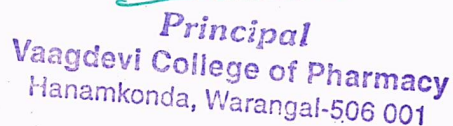 Principal
Vaagdevi College of Pharmacy
Hanamkonda, Warangal-506 001